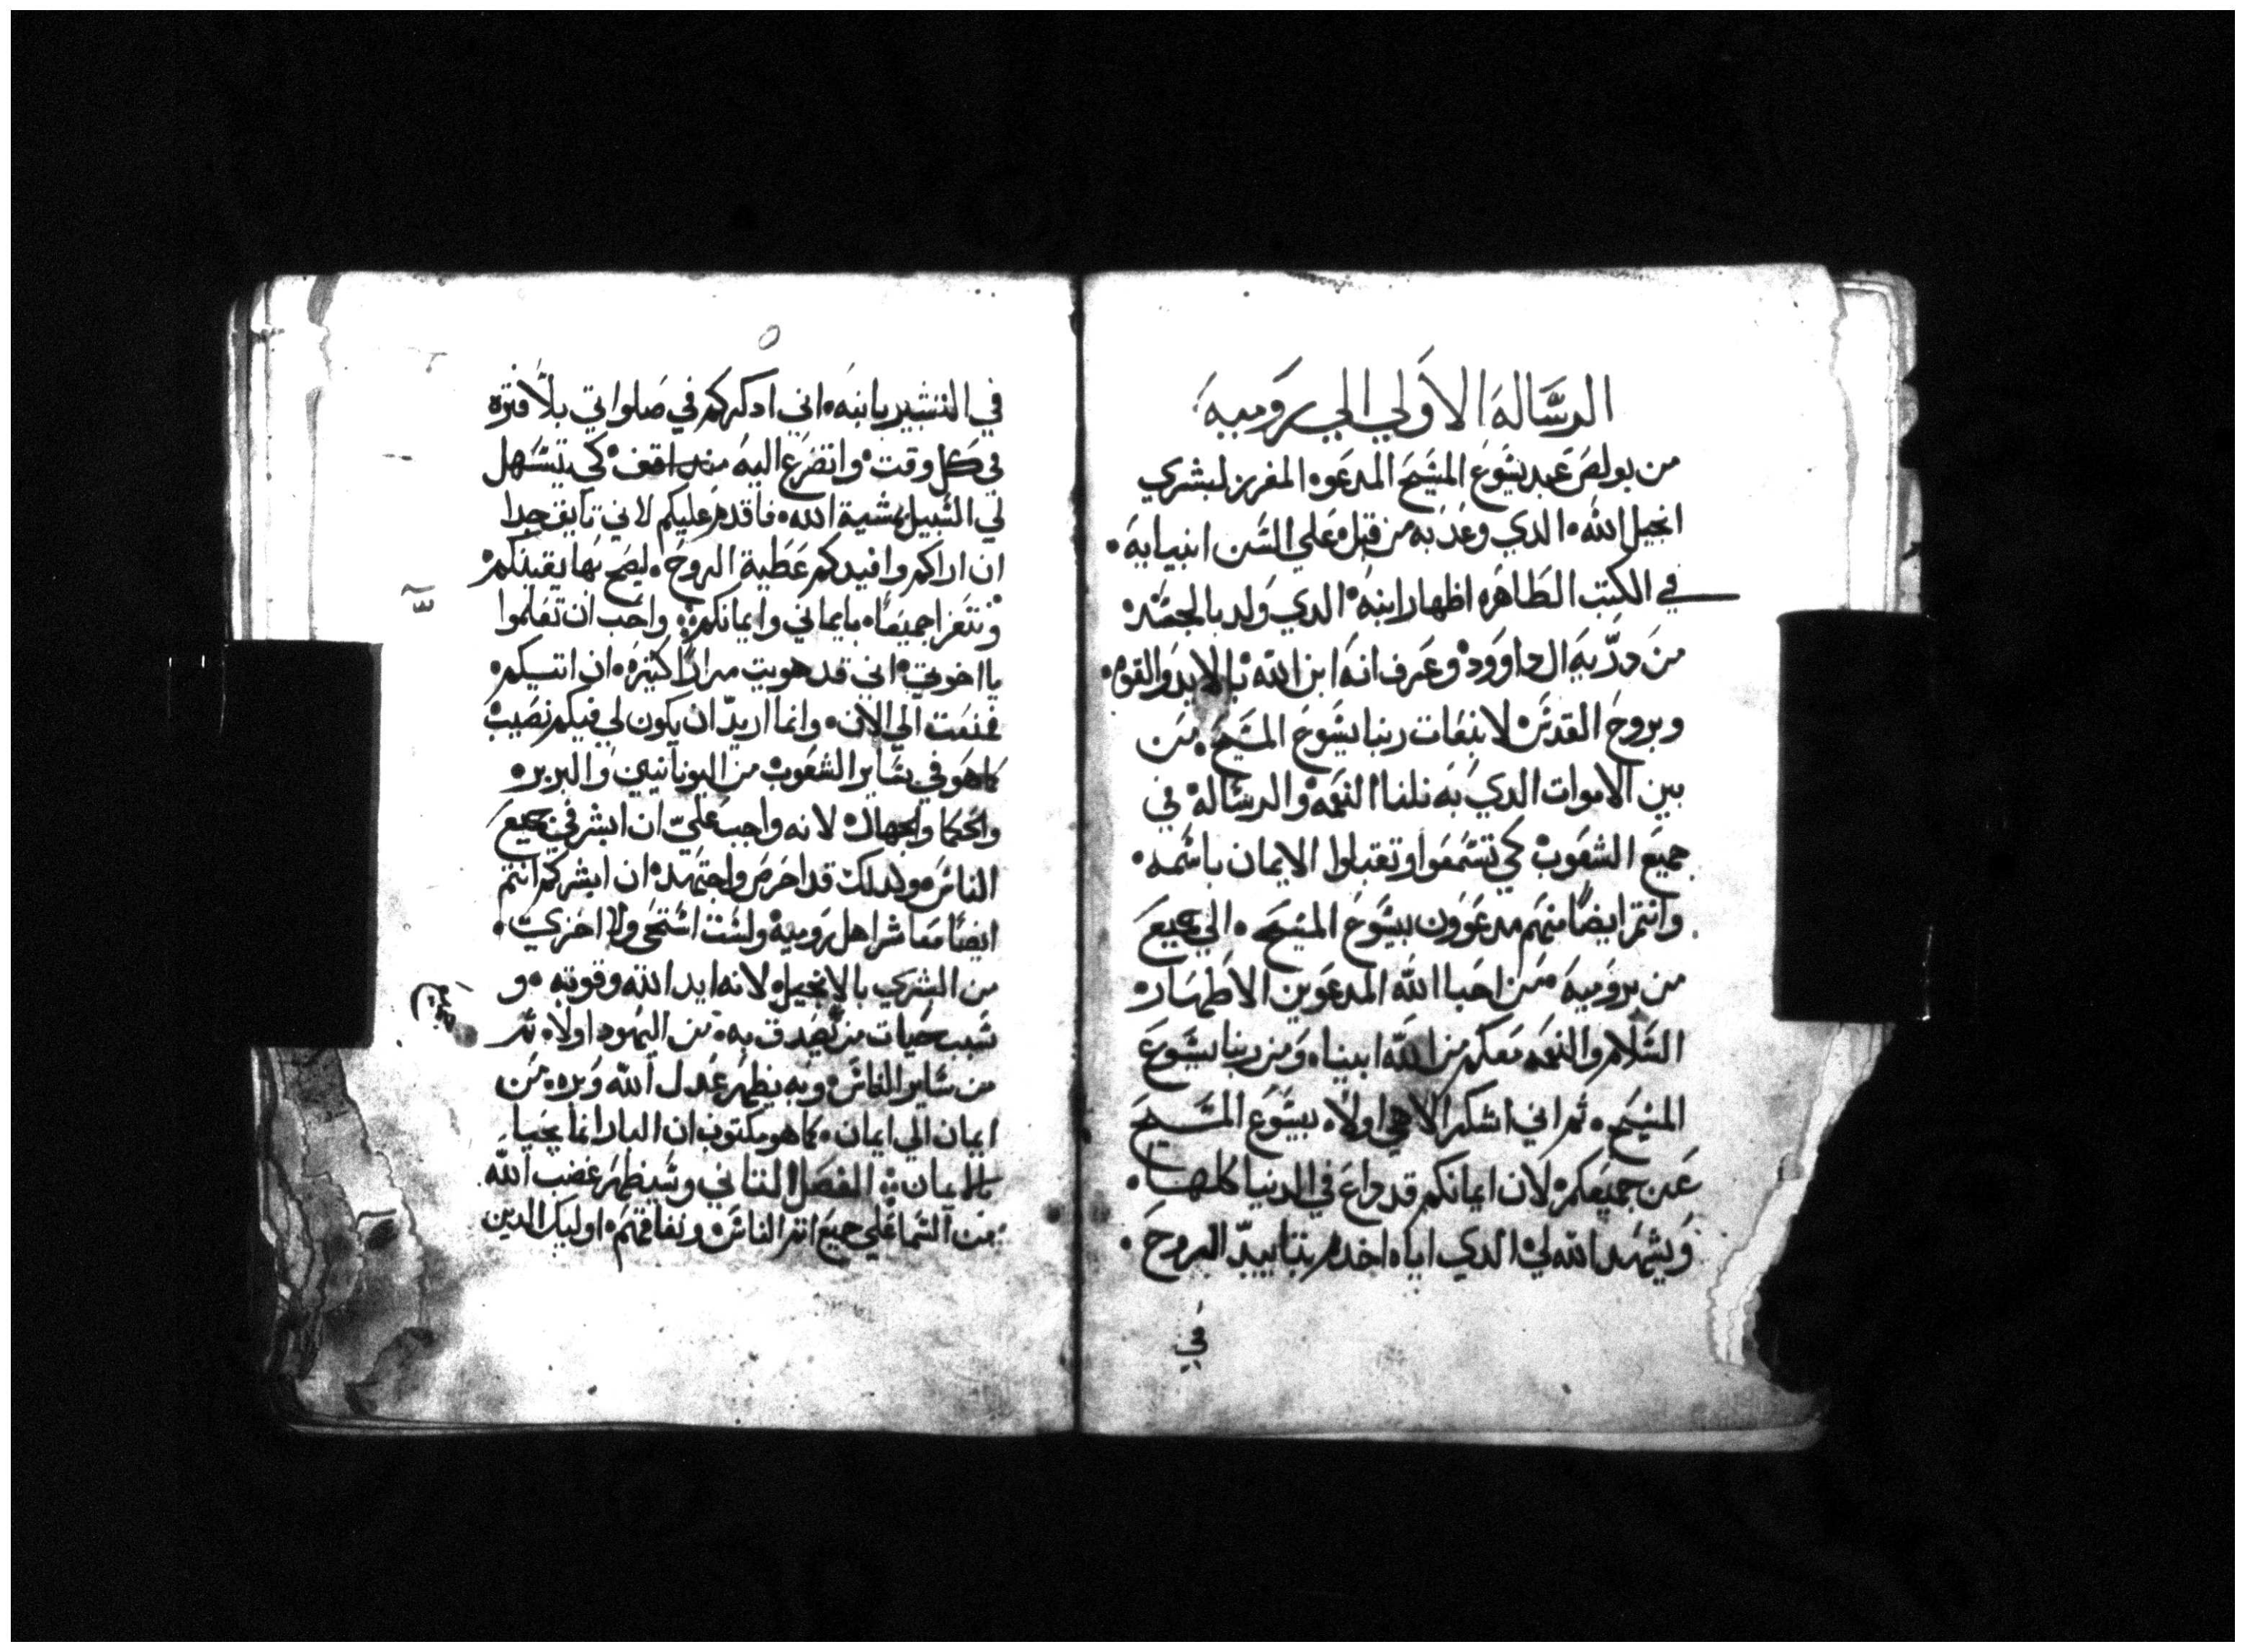 الرساله الاولي الي روميه
من بولص عبد يشوع المشيح المدعوه المفرز لبشري
انجيل الله الدي وعد به من قبل علي السن انبيايه
في الكتب الطاهره اظهار ابنه الدي ولد بالجسد
من درية ال داوود وعرف انه ابن الله بالايد والقوه
وبروح القدس لانبعات ربنا يشوع المشيح من
بين الاموات الدي به نلنا النعمه والرساله في
جميع الشعوب كي تسمعوا وتقبلوا الايمان باسمه
وانتم ايضا منهم مدعوون بيشوع المسيح الي جميع
من بروميه من احبا الله المدعوين الاطهار
السلام والنعمه معكم من الله ابينا ومن ربنا يشوع
المشيح ثم اني اشكر الاهي اولا بيشوع المسيح
عن جميعكم لان ايمانكم قد داع في الدنيا كلها
ويشهد الله لي الدي اياه اخدم بتاييد الروح
في
في التبشير بابنه اني ادكركم في صلواتي بلا فتره
في كل وقت واتضرع اليه كي يتسهل
لي السبيل بمشية الله فاقدم عليكم لاني تايق جدا
ان اراكم وافيدكم عطية الروح ليصح بها يقينكم
ونتعزا جميعا بايماني وايمانكم واحب ان تعلموا
يا اخوتي اني قد هويت مرارا كثيره ان اتيكم
فمنعت الي الان وانما اريد ان يكون لي فيكم نصيب
كما هو في ساير الشعوب من اليونانيين والبربره
والحكما والجهال لانه واجب علي ان ابشر في جميع
الناس وكدلك قد احرص واجتهد ان ابشركم انتم
ايضا معاشر اهل روميه ولست استحي ولا اخزي
من البشري بالانجيل لانه ايد الله وقوته و
سبب حيات من يصدق به من اليهود اولا ثم
من ساير الناس وبه يظهر عدل الله وبره من
ايمان الي ايمان كما هو مكتوب ان البار انما يحيا
بالايمان الفصل التاني وسيظهر غضب الله
من السما علي جميع اتم الناس ونفاقهم اوليك الدين